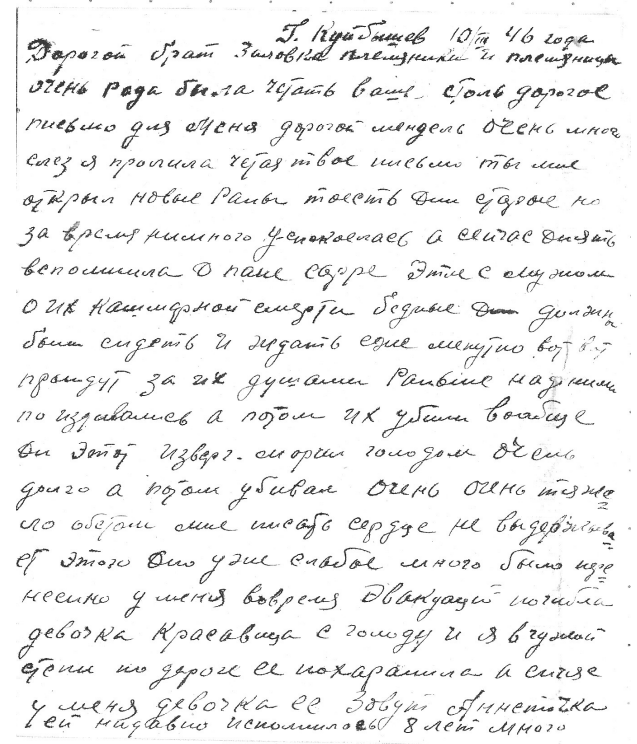 Г. Куйбышев 10/III 46 года
Дорогой брат Золовка племяники и племяницы
очень рада была четать ваше столь дорогое
письмо для меня дорогой мендель очень много
слез я пролила четая твое письмо ты мне
открыл новые раны тоесть они старое но
за время нимного успокоелась а сейчас опять
вспомнила о папе сарре Этле с мужом
о их кашмарной смерти бедные должны
были сидеть и ждать еже менутно вот вот
прыйдут за их душами Раньше над ними
по издивались а потом их убили вообще
он этот изверг морил голодом очень
долго а потом убивал очень очень тяже
ло обстом мне писать сердце не выдержева
ет этого оно уже слабое много было пере
несино у меня вовремя эвакуаций погибла
девочка красавица с голоду и я в чужой
степи по дороге ее похаранила а сичас
у меня девочка ее зовут Аннеточка
ей нидавно исполнилось 8 лет много